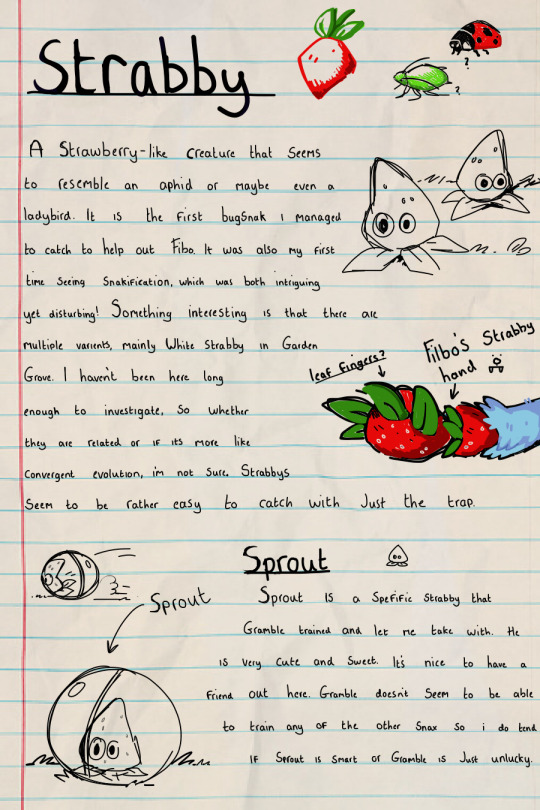 Strabby
?
?
A Strawberry-like creature that seems
to resemble an aphid or maybe even a
ladybird. It is the first bugsnak I managed
to catch to help out Fibo. It was also my first
time seeing Snakification, which was both intriguing
yet disturbing! Something interesting is that there are
multiple varients, mainly White Strabby in Garden
Grove. I haven't been here long
enough to investigate, so whether
they are related or if its more like
convergent evolution, im not sure. Strabbys
seem to be rather easy to catch with Just the trap.
leaf fingers?
Filbo's Strabby
hand
Sprout
Sprout
Sprout is a Spefific Strabby that
Gramble trained and let me take with. He
is very cute and sweet. It's nice to have a
friend out here. Gramble doesnt seem to be able
to train any of the other Snax so i do tend
If Sprout is smart or Gramble is Just unlucky.